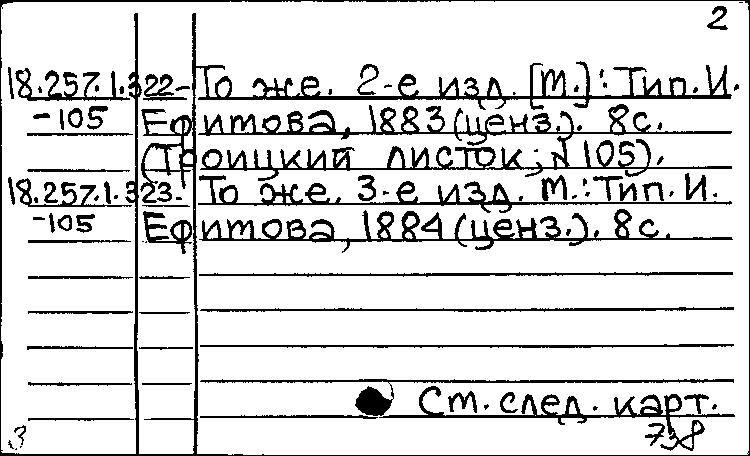 2
18.257.1.322- То же. 2-е изд. [М.]: Тип. И.
-105 Ефимова, 1883 (ценз.). 8с.
(Троицкий листок; № 105).
18.257.1.323- То же. 3-е изд. М.: Тип. И.
-105 Ефимова, 1884 (ценз.). 8с.
См. след. карт.
3 738